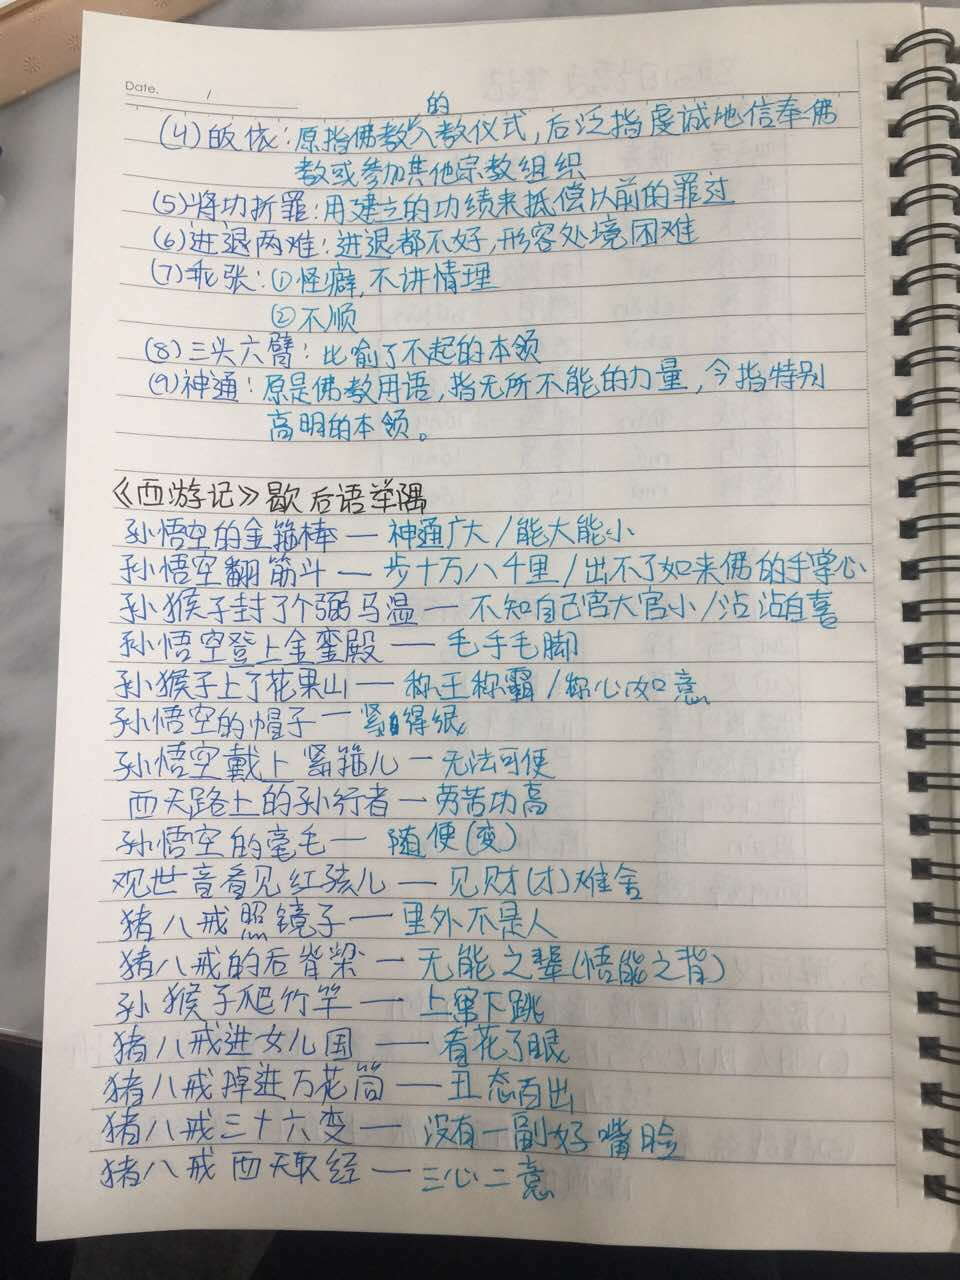 Date. /
(4)皈依:原指佛教的入教仪式,后泛指虔诚地信奉佛
教或参加其他宗教组织
(5)将功折罪:用建立的功绩来抵偿以前的罪过
(6)进退两难:进退都不好,形容处境困难
(7)乖张:①怪癖,不讲情理
②不顺
(8)三头六臂:比喻了不起的本领
(9)神通:原是佛教用语,指无所不能的力量,今指特别
高明的本领。
《西游记》歇后语举隅
孙悟空的金箍棒—神通广大/能大能小
孙悟空翻筋斗—一步十万八千里/出不了如来佛的手掌心
孙猴子封了个弼马温—不知自己官大官小/沾沾自喜
孙悟空登上金銮殿——毛手毛脚
孙猴子上了花果山—称王称霸/称心如意
孙悟空的帽子—紧得很
孙悟空戴上紧箍儿—无法可使
西天路上的孙行者—劳苦功高
孙悟空的毫毛—随便(变)
观世音看见红孩儿—见财(才)难舍
猪八戒照镜子—里外不是人
猪八戒的后脊梁—无能之辈(悟能之背)
孙猴子爬竹竿—上窜下跳
猪八戒进女儿国——看花了眼
猪八戒掉进万花筒——丑态百出
猪八戒三十六变—没有一副好嘴脸
猪八戒西天取经—三心二意